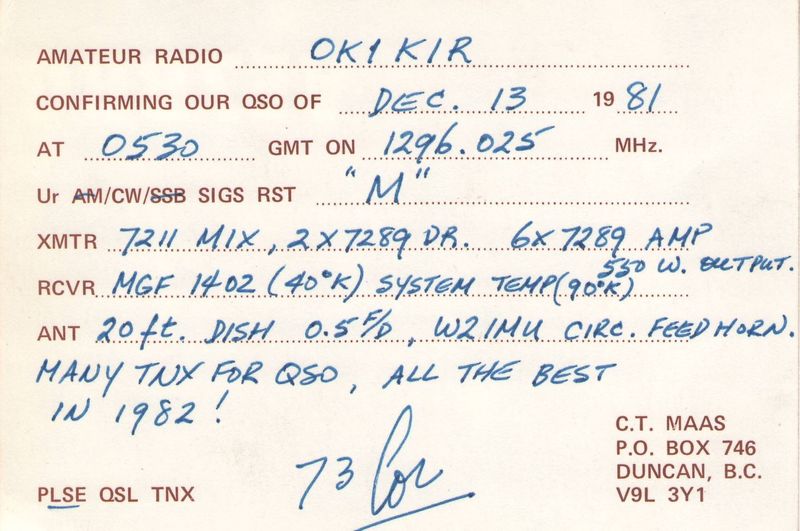 AMATEUR RADIO OK1KIR
CONFIRMING OUR QSO OF DEC. 13 1981
AT 0530 GMT ON 1296.025 MHz.
Ur AM/CW/SSB SIGS RST "M"
XMTR 7211 MIX, 2X7289 DR. 6X7289 AMP
550 W. OUTPUT.
RCVR MGF 1402 (40°K) SYSTEM TEMP (90°K)
ANT 20ft. DISH 0.5 F/D, W2IMU CIRC. FEEDHORN.
MANY TNX FOR QSO, ALL THE BEST
IN 1982!
73 Cor
PLSE QSL TNX
C.T. MAAS
P.O. BOX 746
DUNCAN, B.C.
V9L 3Y1